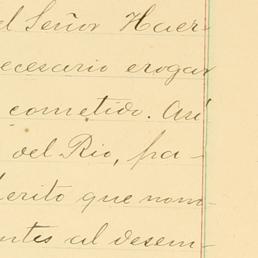 el Señor Haer-
ecesario erogar
cometido. Así
del Rio, pa-
erito que nom-
ntes al desem-